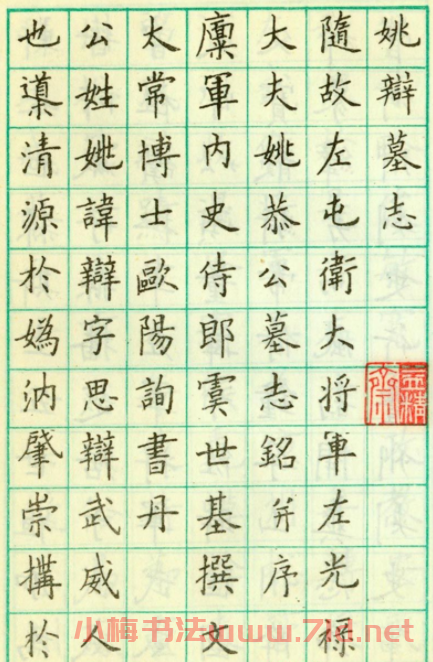 姚辯墓志
隨故左屯衛大将軍左光祿
大夫姚恭公墓志銘并序
廩軍内史侍郎虞世基撰文
太常博士歐陽詢書丹
公姓姚諱辯字思辯武威人
也導清源於媯汭肇崇搆於
小梅书法